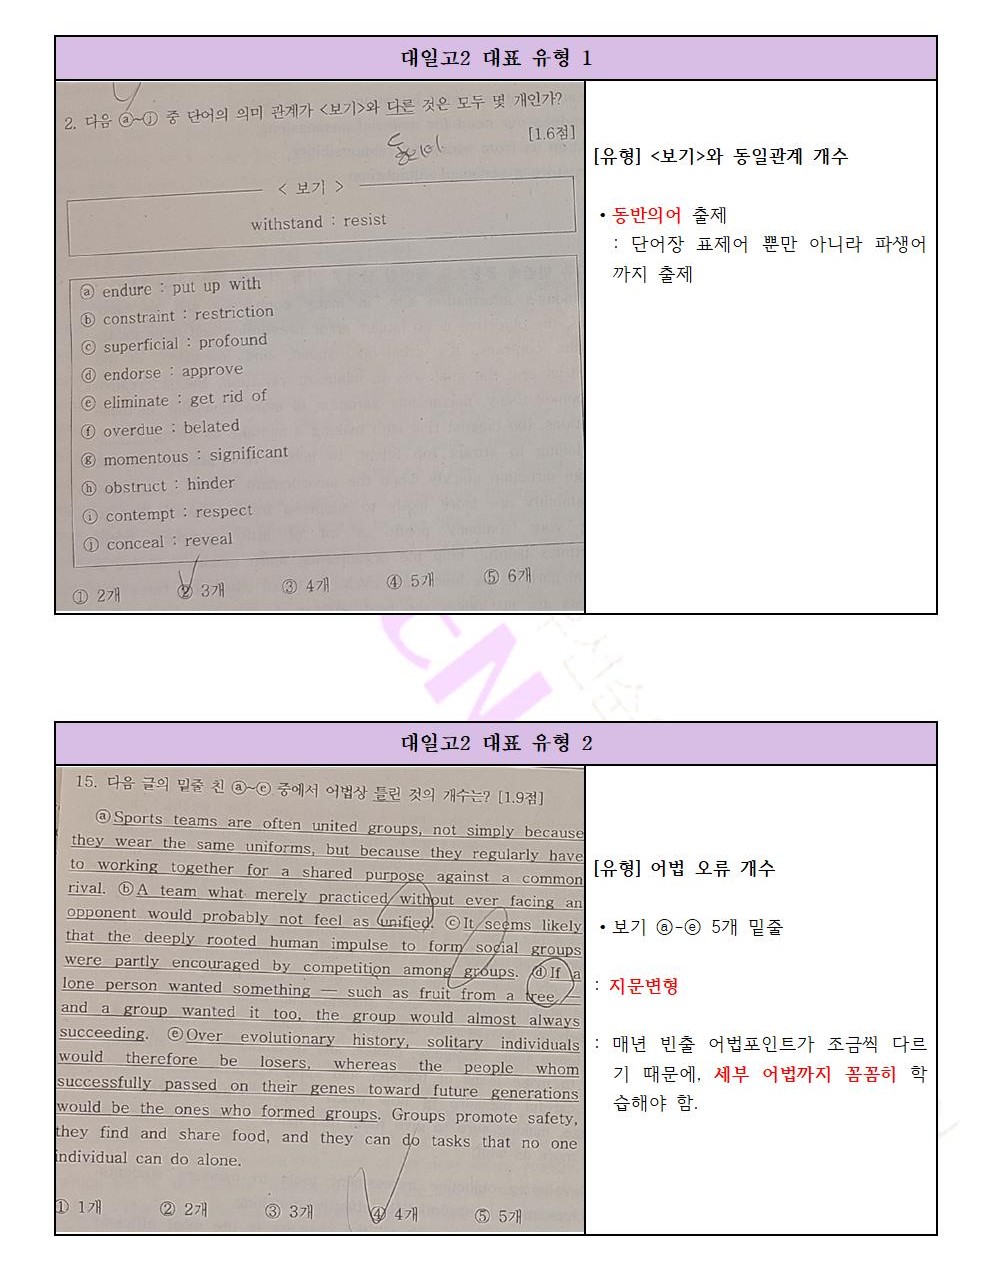 대일고2 대표 유형 1
2. 다음 ⓐ~ⓙ 중 단어의 의미 관계가 <보기>와 다른 것은 모두 몇 개인가?
[1.6점]
동의어
< 보기 >
withstand : resist
ⓐ endure : put up with
ⓑ constraint : restriction
ⓒ superficial : profound
ⓓ endorse : approve
ⓔ eliminate : get rid of
ⓕ overdue : belated
ⓖ momentous : significant
ⓗ obstruct : hinder
ⓘ contempt : respect
ⓙ conceal : reveal
① 2개 ② 3개 ③ 4개 ④ 5개 ⑤ 6개
[유형] <보기>와 동일관계 개수
• 동반의어 출제
: 단어장 표제어 뿐만 아니라 파생어
까지 출제
CN
대일고2 대표 유형 2
15. 다음 글의 밑줄 친 ⓐ~ⓔ 중에서 어법상 틀린 것의 개수는? [1.9점]
ⓐSports teams are often united groups, not simply because
they wear the same uniforms, but because they regularly have
to working together for a shared purpose against a common
rival. ⓑA team what merely practiced without ever facing an
opponent would probably not feel as unified. ⓒIt seems likely
that the deeply rooted human impulse to form social groups
were partly encouraged by competition among groups. ⓓIf a
lone person wanted something — such as fruit from a tree —
and a group wanted it too, the group would almost always
succeeding. ⓔOver evolutionary history, solitary individuals
would therefore be losers, whereas the people whom
successfully passed on their genes toward future generations
would be the ones who formed groups. Groups promote safety,
they find and share food, and they can do tasks that no one
individual can do alone.
① 1개 ② 2개 ③ 3개 ④ 4개 ⑤ 5개
[유형] 어법 오류 개수
• 보기 ⓐ-ⓔ 5개 밑줄
: 지문변형
: 매년 빈출 어법포인트가 조금씩 다르
기 때문에, 세부 어법까지 꼼꼼히 학
습해야 함.